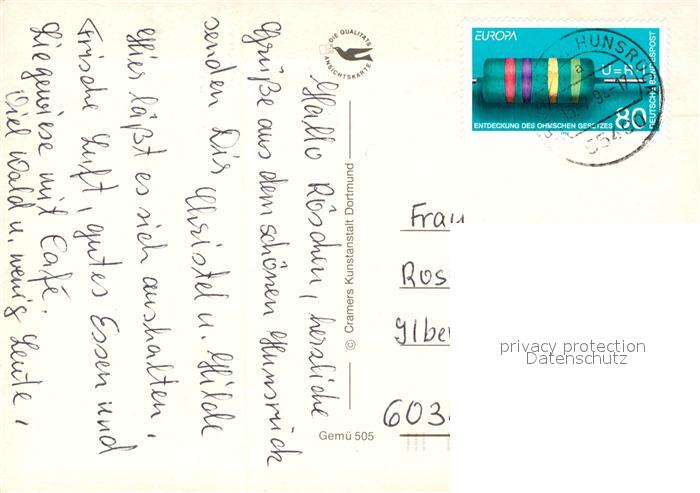 Hallo Röschen, herzliche
Grüße aus dem schönen Hunsrück
senden Dir Christel u. Hilde
Hier läßt es sich aushalten,
Frische Luft, gutes Essen und
Liegewiese mit Café.
Viel Wald u. wenig Leute,
DIE QUALITÄTS
ANSICHTSKARTE
© Cramers Kunstanstalt Dortmund
Gemü 505
EUROPA
U=R·I
ENTDECKUNG DES OHMSCHEN GESETZES
80
DEUTSCHE BUNDESPOST
HUNSRÜ
a
94-17
Frau
Ros
Ilbe
603
privacy protection
Datenschutz